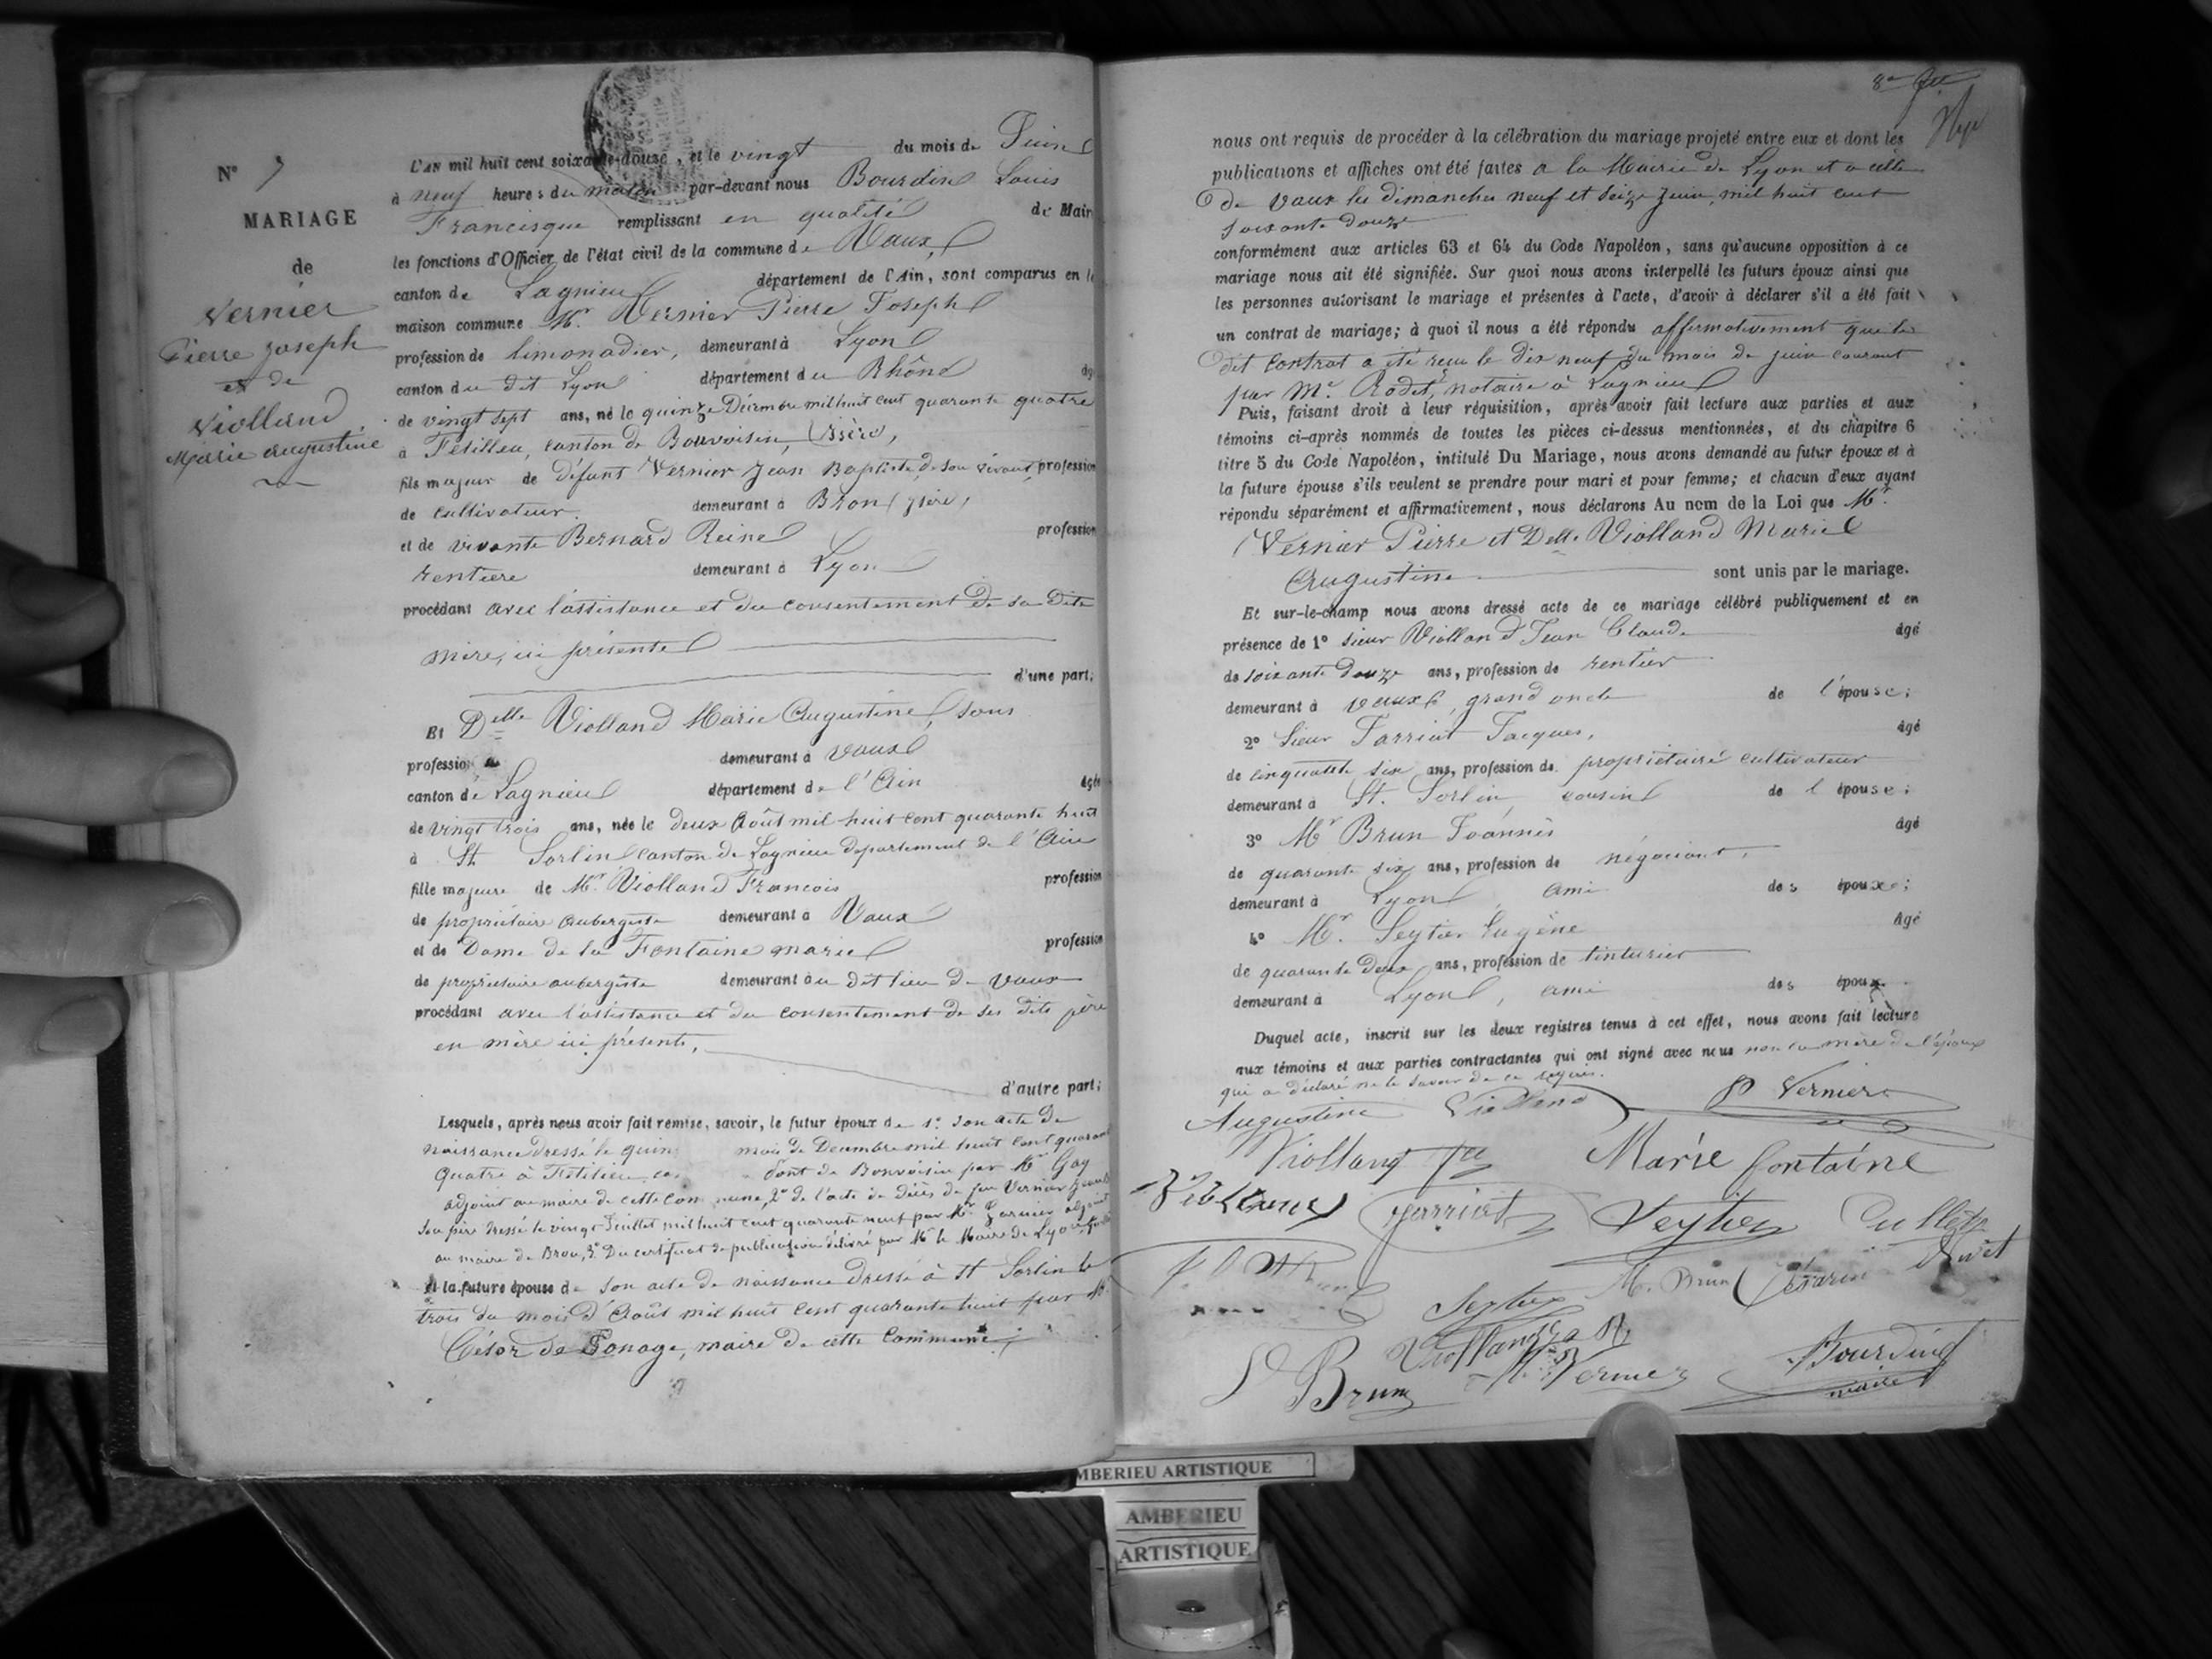 N° 7
MARIAGE
de
Vernier
Pierre Joseph
et de
Violland
Marie Augustine
L'AN mil huit cent soixante-douze, et le vingt du mois de Juin
à neuf heures du matin par-devant nous Bourdin Louis
Francisque remplissant en qualité de Maire
les fonctions d'Officier de l'état civil de la commune de Vaux,
canton de Lagnieu département de l'Ain, sont comparus en la
maison commune Mr Vernier Pierre Joseph
profession de limonadier, demeurant à Lyon
canton du dit Lyon département du Rhône âgé
de vingt sept ans, né le quinze Décembre mil huit cent quarante quatre
à Fétilleu, canton de Bouvoisin, (Isère),
fils majeur de défunt Vernier Jean Baptiste, de son vivant, profession
de cultivateur demeurant à Bron (Isère),
et de vivante Bernard Reine profession
rentière demeurant à Lyon
procédant avec l'assistance et du consentement de sa dite
mère, ici présente
d'une part;
Et Delle Violland Marie Augustine, sans
profession demeurant à Vaux
canton de Lagnieu département de l'Ain âgée
de vingt trois ans, née le deux Août mil huit cent quarante huit
à St Sorlin canton de Lagnieu département de l'Ain
fille majeure de Mr Violland François profession
de propriétaire aubergiste demeurant à Vaux
et de Dame de la Fontaine Marie profession
de propriétaire aubergiste demeurant au dit lieu de Vaux
procédant avec l'assistance et du consentement de ses dits père
en mère ici présents,
d'autre part;
Lesquels, après nous avoir fait remise, savoir, le futur époux de 1° son acte de
naissance dressé le quin mois de Décembre mil huit cent quarante
quatre à Fétilieu, can dont de Bonvoisin par Mr Gay
adjoint au maire de cette commune, 2° de l'acte de décès de feu Vernier Jean
son père dressé le vingt Juillet mil huit cent quarante neuf par Mr Garnier adjoint
au maire de Bron, 3° Du certificat de publication délivré par Mr le Maire de Lyon,
et la future épouse de son acte de naissance dressé à St Sorlin le
trois du mois d'Août mil huit cent quarante huit par Mr
César de Tonage, maire de cette commune;
nous ont requis de procéder à la célébration du mariage projeté entre eux et dont les
publications et affiches ont été faites à la Mairie de Lyon et à celle
de Vaux les dimanches neuf et seize Juin, mil huit cent
soixante douze
conformément aux articles 63 et 64 du Code Napoléon, sans qu'aucune opposition à ce
mariage nous ait été signifiée. Sur quoi nous avons interpellé les futurs époux ainsi que
les personnes autorisant le mariage et présentes à l'acte, d'avoir à déclarer s'il a été fait
un contrat de mariage; à quoi il nous a été répondu affirmativement que le
dit contrat a été reçu le dix neuf du mois de juin courant
par Me Rodet, notaire à Lagnieu
Puis, faisant droit à leur réquisition, après avoir fait lecture aux parties et aux
témoins ci-après nommés de toutes les pièces ci-dessus mentionnées, et du chapitre 6
titre 5 du Code Napoléon, intitulé Du Mariage, nous avons demandé au futur époux et à
la future épouse s'ils veulent se prendre pour mari et pour femme; et chacun d'eux ayant
répondu séparément et affirmativement, nous déclarons Au nom de la Loi que Mr
Vernier Pierre et Delle Violland Marie
Augustine sont unis par le mariage.
Et sur-le-champ nous avons dressé acte de ce mariage célébré publiquement et en
présence de 1° sieur Violland Jean Claude âgé
de soixante douze ans, profession de rentier
demeurant à Vaux, grand oncle de l'épouse;
2° Sieur Jarriat Jacques, âgé
de cinquante six ans, profession de propriétaire cultivateur
demeurant à St. Sorlin, cousin de l'épouse;
3° Mr Brun Joannès âgé
de quarante six ans, profession de négociant,
demeurant à Lyon, ami des époux;
4° Mr. Seytier Eugène âgé
de quarante deux ans, profession de tinturier
demeurant à Lyon, ami des époux.
Duquel acte, inscrit sur les deux registres tenus à cet effet, nous avons fait lecture
aux témoins et aux parties contractantes qui ont signé avec nous non la mère de l'époux
qui a déclaré ne le savoir de ce requis.
Augustine Violland P Vernier
Violland Marie fontaine
Violland Jarriat Seytier
Seytier M. Brun
Violland
Brun Vernier Bourdin
maire
AMBERIEU ARTISTIQUE
AMBERIEU
ARTISTIQUE